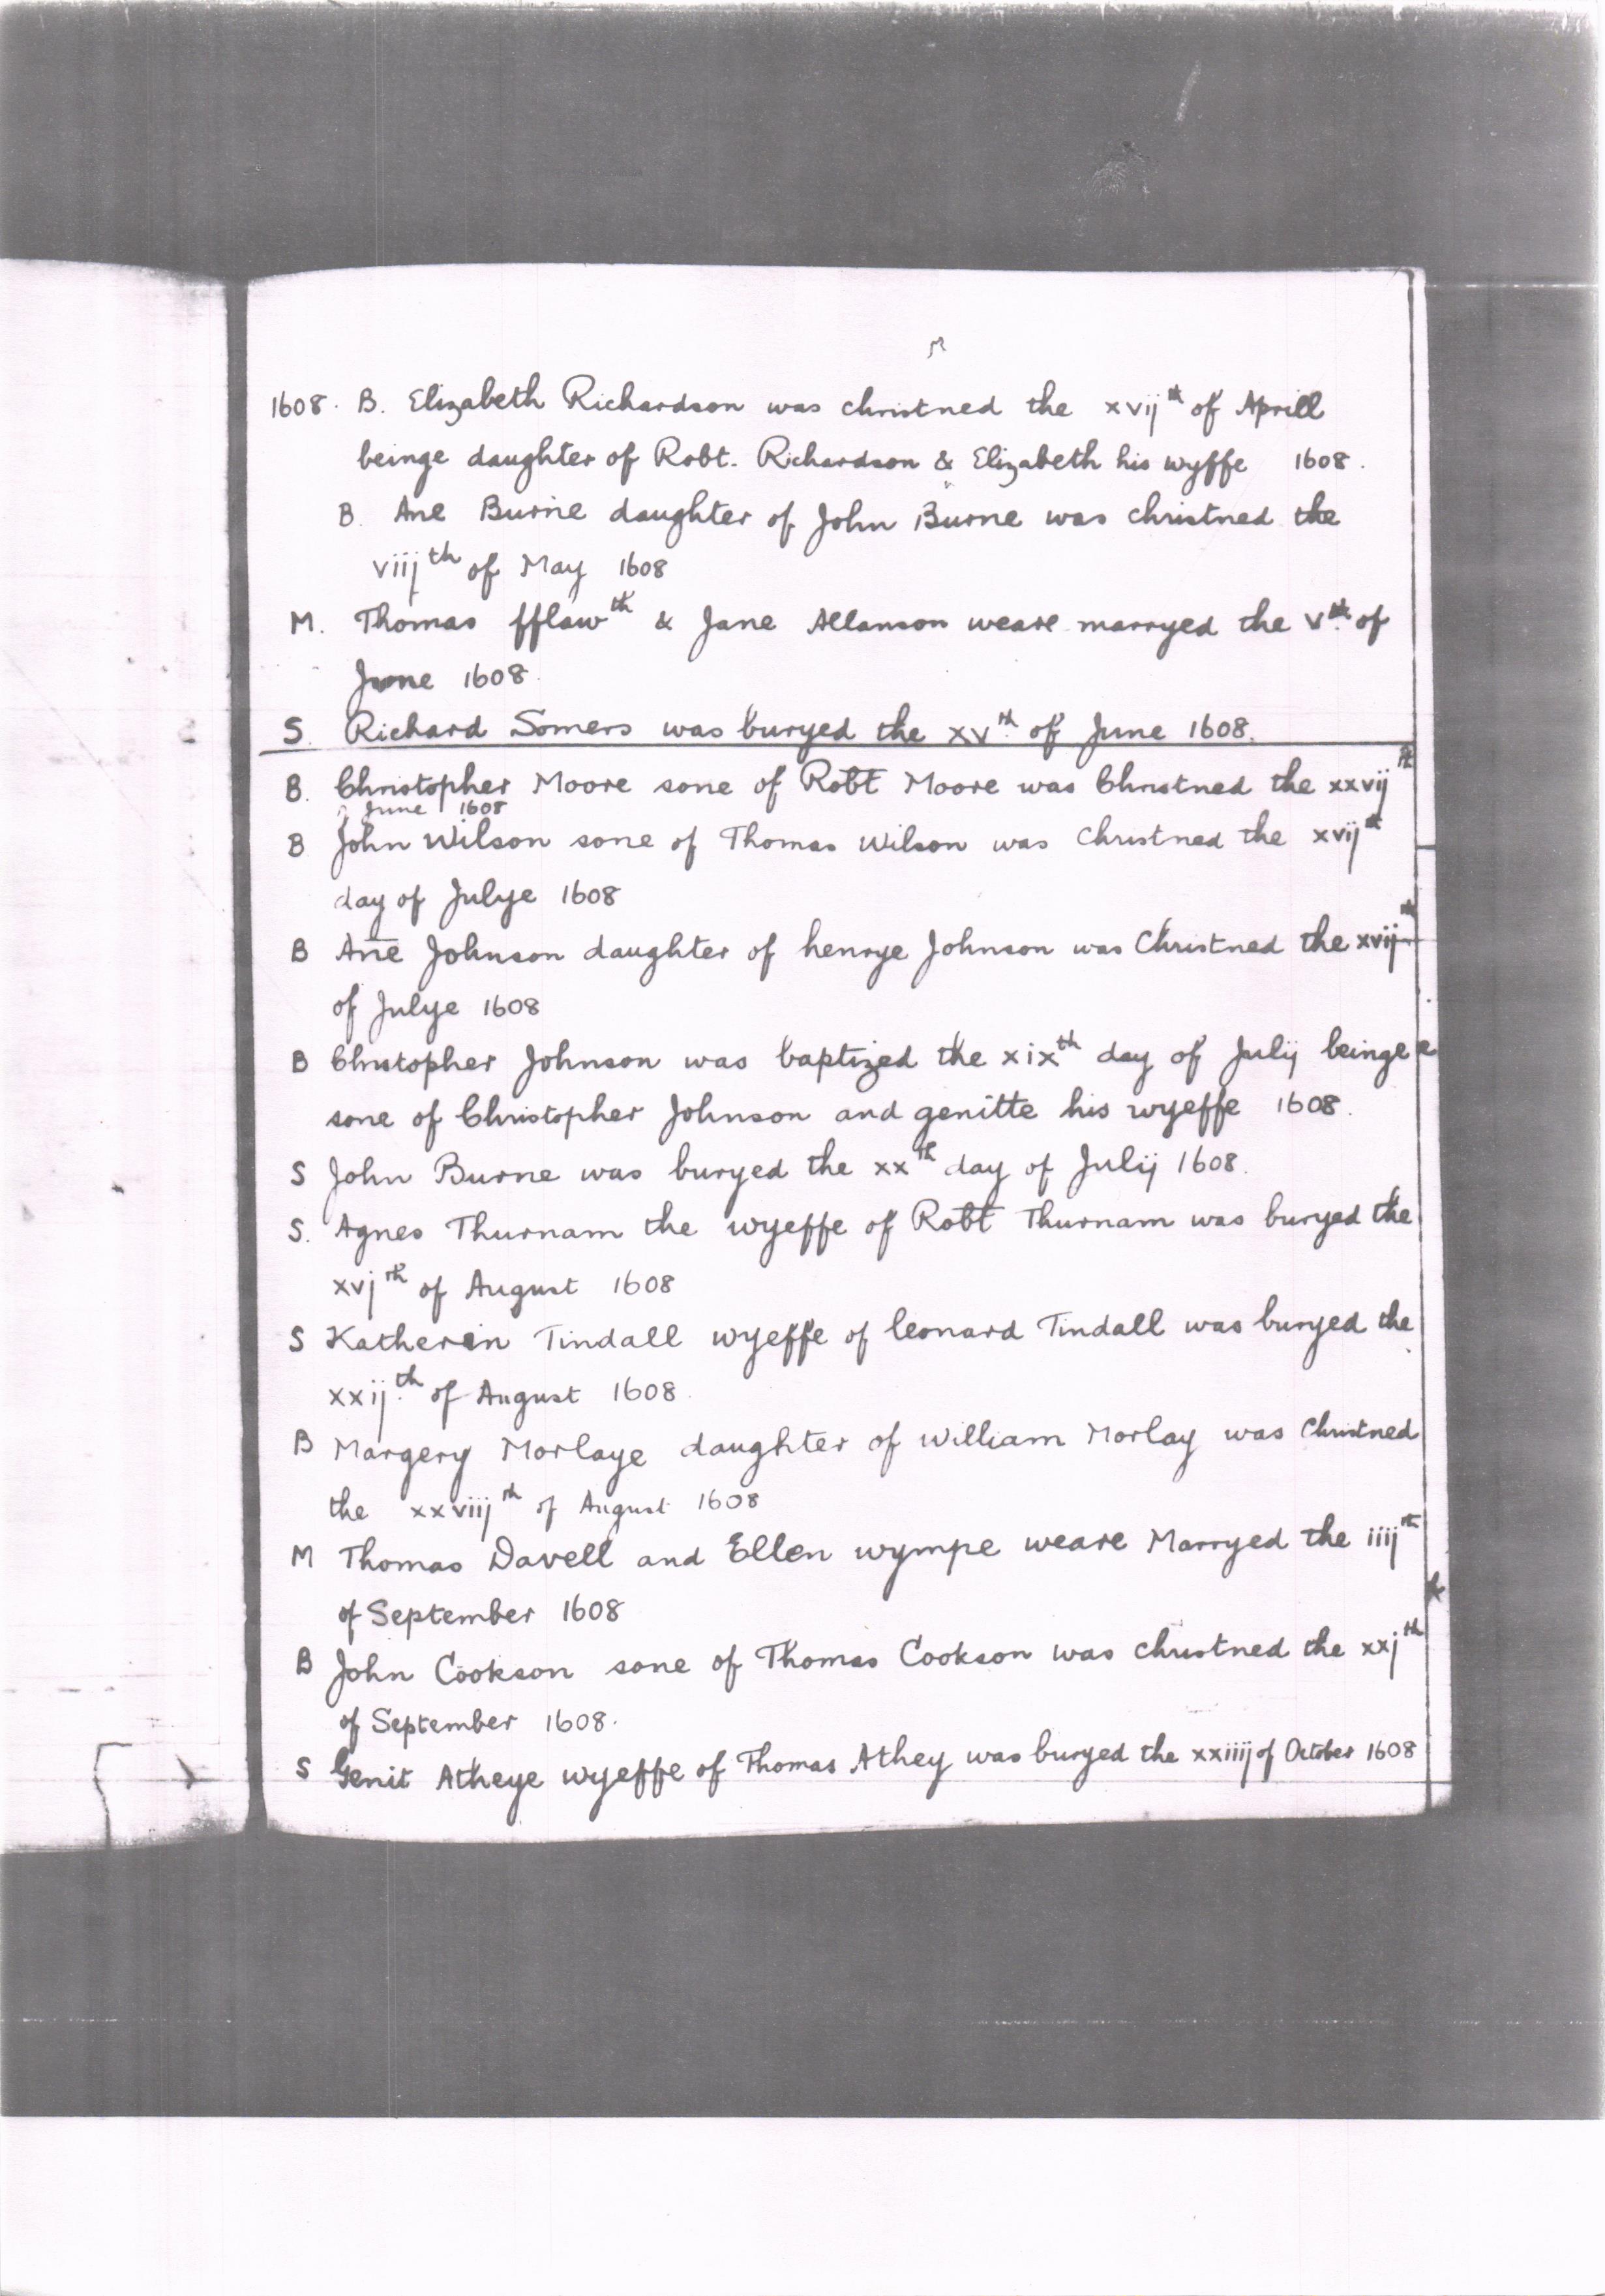 1608. B. Elizabeth Richardson was christned the xvijth of Aprill
beinge daughter of Robt. Richardson & Elizabeth his wyffe 1608.
B. Ane Burne daughter of John Burne was christned the
viijth of May 1608
M. Thomas fflawth & Jane Allanson weare marryed the vth of
June 1608.
S. Richard Somers was buryed the xvth of June 1608.
B. Christopher Moore sone of Robt Moore was Christned the xxvijth
June 1608
B John Wilson sone of Thomas Wilson was Christned the xvijth
day of Julye 1608
B Añe Johnson daughter of henrye Johnson was Christned the xvijth
of Julye 1608
B Chrstopher Johnson was baptized the xixth day of Julij beinge
sone of Christopher Johnson and genitte his wyeffe 1608.
S John Burne was buryed the xxth day of Julij 1608.
S. Agnes Thurnam the wyeffe of Robt Thurnam was buryed the
xvjth of August 1608
S Katherin Tindall wyeffe of leonard Tindall was buryed the
xxij.th of August 1608.
B Margery Morlaye daughter of William Morlay was Christned
the xxviijth of August 1608
M Thomas Davell and Ellen wympe weare Marryed the iiijth
of September 1608
B John Cookson sone of Thomas Cookson was christned the xxjth
of September 1608.
S Genit Atheye wyeffe of Thomas Athey was buryed the xxiiij of October 1608